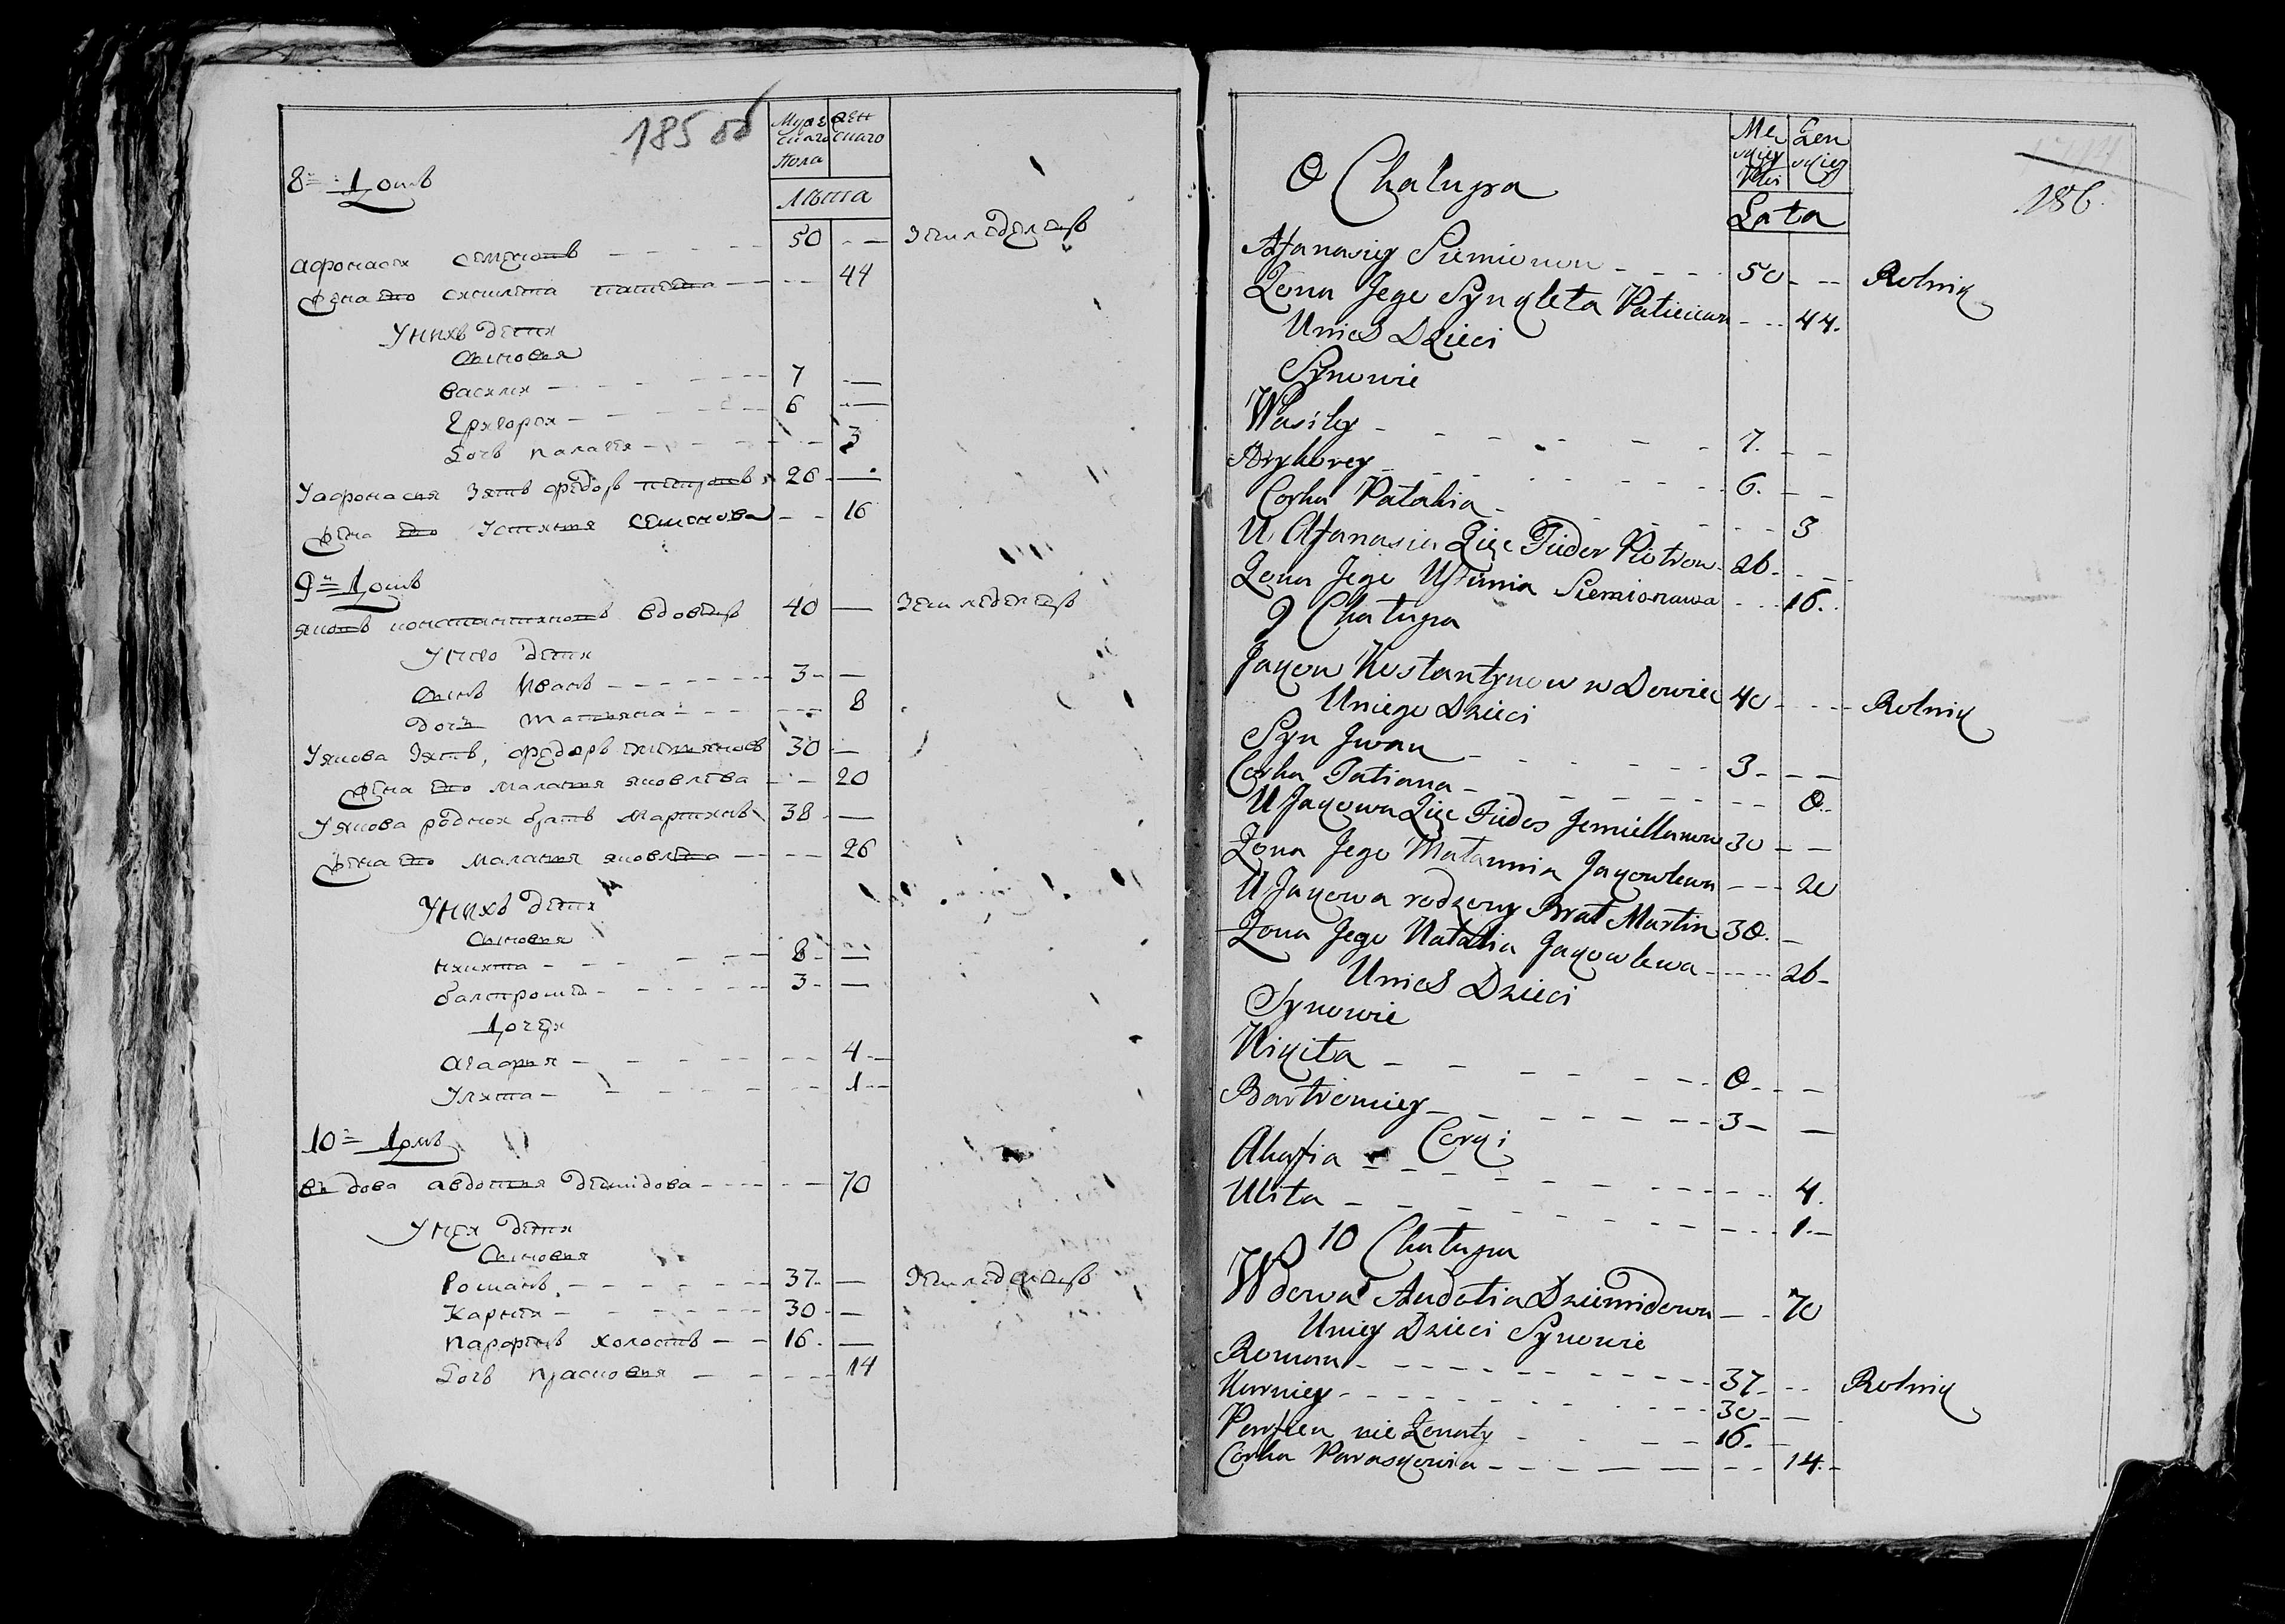 185 об
Мужескаго пола
Женскаго
Лѣта
8й Домъ
Афонасеи Семеновъ 50 Земледелецъ
Жена его Сиклета 44
У нихъ дети
Сыновья
Василеи 7
Григореи 6
Дочь Палагея 3
У Афонасия Зять Федоръ Петровъ 26
Жена его Устинья Семенова 16
9й Домъ
Яковъ Константиновъ Вдовецъ 40 Земледелецъ
У него дети
Сынъ Иванъ 3
Дочь Татьяна 8
У Якова Зять, Федоръ Емельяновъ 30
Жена его Маланья Яковлева 20
У Якова родной братъ Мартинъ 38
Жена его Маланья Яковлева 26
У нихъ дети
Сыновья
Никита 8
Балтромей 3
Дочери
Агафья 4
Улита 1
10й Домъ
Въдова Авдотья Демидова 70
У неи дети
Сыновья
Романъ 37 Земледелецъ
Карней 30
Парфенъ холостъ 16
Дочь Прасковья 14
186.
Męskiey Płci
Żenskiey
Lata
8 Chałupa
Afanasiey Siemionow 50 Rolnik
Żona Jego Synkleta 44.
U nich Dzieci
Synowie
Wasiley 7.
Hryhorey 6.
Corka Pałahia 3
U Afanasia Zięc Fiedor Piotrow 26
Żona Jego Ustinia Siemionawa 16.
9 Chałupa
Jakow Kostantynow w Dowiec 40 Rolnik
U niego Dzieci
Syn Jwan 3
Corka Tatiana 8
U Jakowa Zięc Fiedor Jemiellanow 30
Żona Jego Małannia Jakowlewa 20
U Jakowa rodzony Brat Martin 38
Żona Jego Natalia Jakowlewa 26
U nich Dzieci
Synowie
Nikita 8
Bartłomiey 3
Corki
Ahafia 4.
Ulita 1
10 Chałupa
Wdowa Audotia Dziemidowa 70
U niey Dzieci Synowie
Roman 37 Rolnik
Karniey 30
Parfien nie Żonaty 16.
Corka Paraskowia 14.